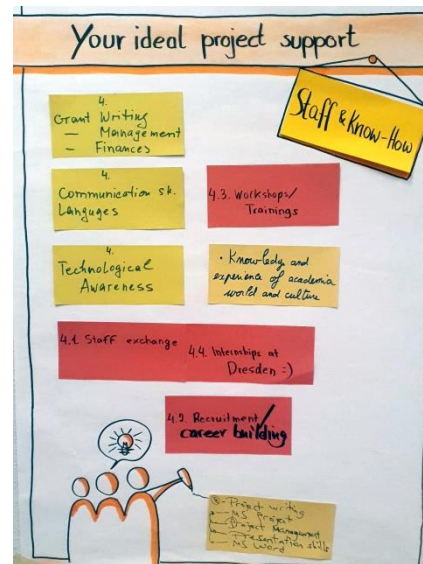 Your ideal project support
Staff & Know-How
4.
Grant Writing
— Management
— Finances
4.
Communication sk.
Languges
4.3. Workshops/
Trainings
4.
Technological
Awareness
• Knowledge and
experience of academia
world and culture
4.1. Staff exchange
4.4. Internships at
Dresden =)
4.2. Recruitment/
career building
Project writing
MS Project
Project Management
Presentation skills
MS Word